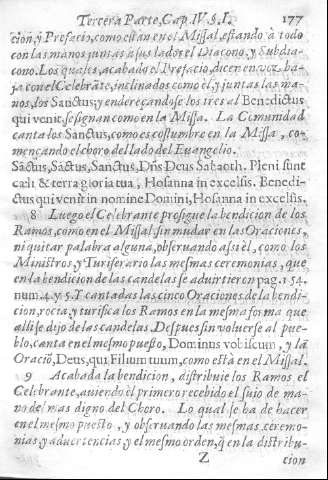 Tercera Parte, Cap. IV. §. I. 177
cion, y Prefacio, como están en el Missal, estando à todo
con las manos juntas à sus lados el Diacono, y Subdia-
cono. Los quales, acabado el Prefacio, dicen en voz ba-
ja con el Celebrãte, inclinados como èl, y juntas las ma-
nos, los Sanctus; y enderezandose los tres al Benedictus
qui venit, se signan como en la Missa. La Comunidad
canta los Sanctus, como es costumbre en la Missa, co-
mençando el choro del lado del Euangelio.
Sãctus, Sãctus, Sanctus, Dñs Deus Sabaoth. Pleni sunt
cæli & terra gloria tua, Hosanna in excelsis. Benedi-
ctus qui venit in nomine Domini, Hosanna in excelsis.
8 Luego el Celebrante prosigue la bendicion de los
Ramos, como en el Missal, sin mudar en las Oraciones,
ni quitar palabra alguna, observando assi èl, como los
Ministros, y Turiferario las mesmas ceremonias, que
en la bendicion de las candelas se advirtieron pag. 154.
num. 4. y 5. Y cantadas las cinco Oraciones de la bendi-
cion, rocia, y turifica los Ramos en la mesma forma que
alli se dijo de las candelas. Despues sin volverse al pue-
blo, canta en el mesmo puesto, Dominus vobiscum, y la
Oraciõ, Deus, qui Filium tuum, como està en el Missal.
9 Acabada la bendicion, distribuie los Ramos el
Celebrante, auiendo èl primero recebido el suio de ma-
no del mas digno del Choro. Lo qual se ha de hacer
en el mesmo puesto, y observando las mesmas ceremo-
nias, y advertencias y el mesmo orden, q̃ en la distribu-
Z cion